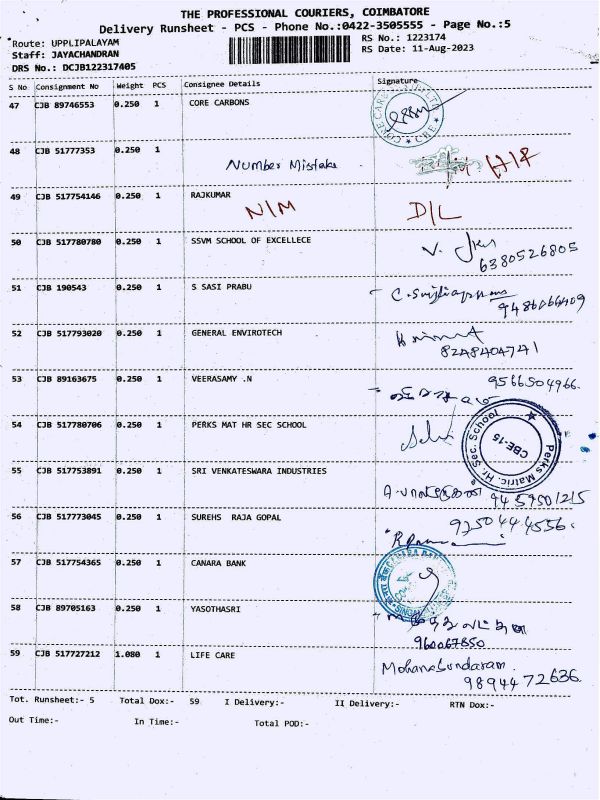 THE PROFESSIONAL COURIERS, COIMBATORE
Delivery Runsheet - PCS - Phone No.:0422-3505555 - Page No.:5
Route: UPPLIPALAYAM
RS No.: 1223174
Staff: JAYACHANDRAN
RS Date: 11-Aug-2023
DRS No.: DCJB122317405
S No Consignment No Weight PCS Consignee Details Signature
47 CJB 89746553 0.250 1 CORE CARBONS
48 CJB 51777353 0.250 1 Number Mistake
49 CJB 517754146 0.250 1 RAJKUMAR
N/M D/L
50 CJB 517780780 0.250 1 SSVM SCHOOL OF EXCELLECE
6380526805
51 CJB 190543 0.250 1 S SASI PRABU
9486066409
52 CJB 517793020 0.250 1 GENERAL ENVIROTECH
8248404741
53 CJB 89163675 0.250 1 VEERASAMY .N
9566504966.
54 CJB 517780706 0.250 1 PERKS MAT HR SEC SCHOOL
Perks Matric. Hr. Sec. School
CBE-15
55 CJB 517753891 0.250 1 SRI VENKATESWARA INDUSTRIES
9459501215
56 CJB 517773045 0.250 1 SUREHS RAJA GOPAL
57 CJB 517754365 0.250 1 CANARA BANK
58 CJB 89705163 0.250 1 YASOTHASRI
59 CJB 517727212 1.080 1 LIFE CARE
Mohanasundaram.
9894472636.
Tot. Runsheet:- 5 Total Dox:- 59 I Delivery:- II Delivery:- RTN Dox:-
Out Time:- In Time:- Total POD:-